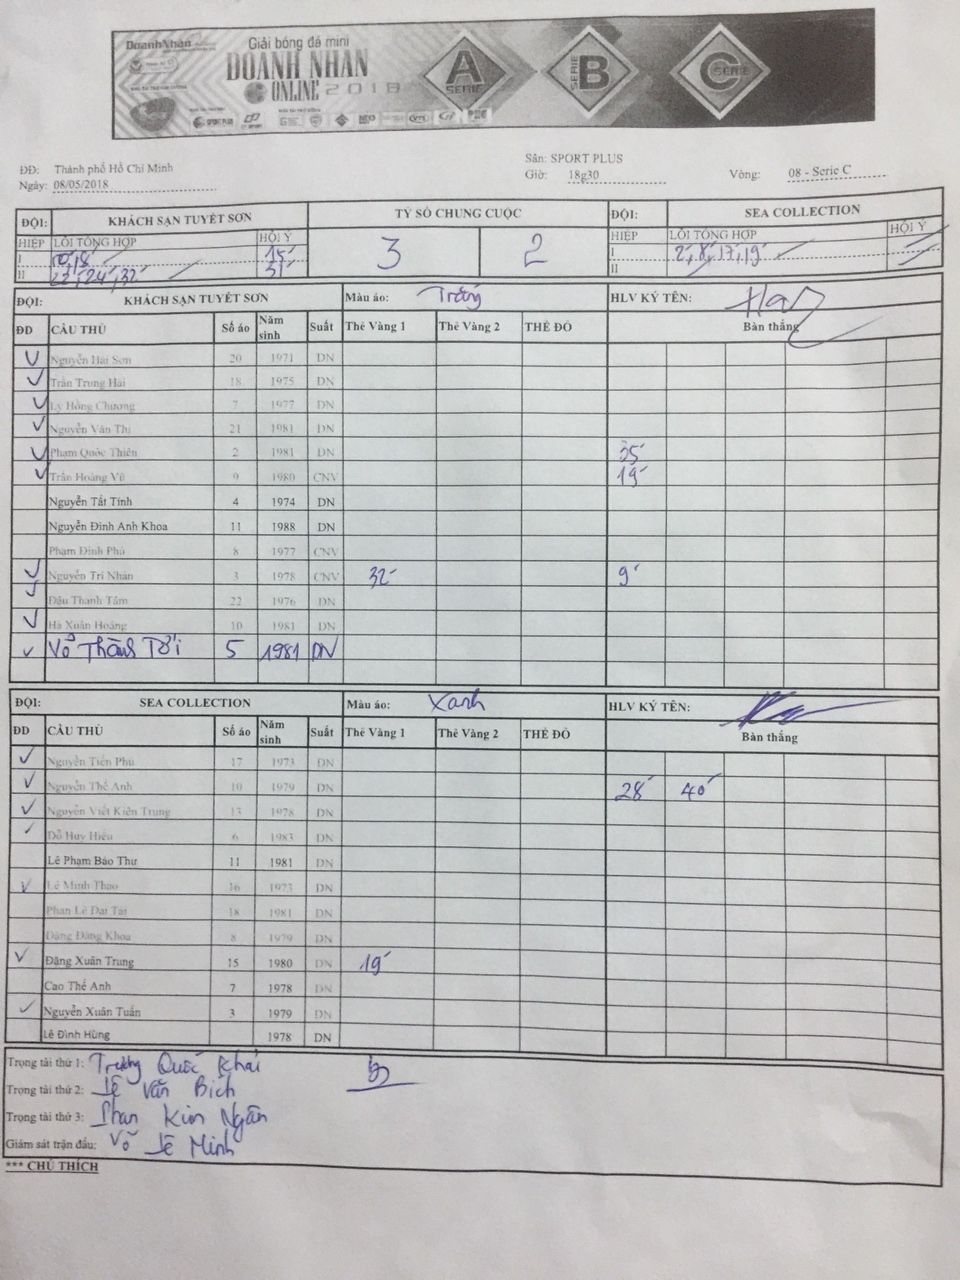 DoanhNhân
Giải bóng đá mini
DOANH NHÂN
ONLINE 2018
A SERIE
B SERIE
C SERIE
ĐĐ: Thành phố Hồ Chí Minh Sân: SPORT PLUS
Ngày: 08/05/2018 Giờ: 18g30 Vòng: 08 - Serie C
ĐỘI: KHÁCH SẠN TUYẾT SƠN TỶ SỐ CHUNG CUỘC ĐỘI: SEA COLLECTION
HIỆP LỖI TỔNG HỢP HỘI Ý 3 2 HIỆP LỖI TỔNG HỢP HỘI Ý
I 18' 15' I 2', 8', 17', 19'
II 22', 24', 32' II
ĐỘI: KHÁCH SẠN TUYẾT SƠN Màu áo: Trắng HLV KÝ TÊN:
ĐD CẦU THỦ Số áo Năm sinh Suất Thẻ Vàng 1 Thẻ Vàng 2 THẺ ĐỎ Bàn thắng
Nguyễn Hải Sơn 20 1971 DN
Trần Trung Hải 18 1975 DN
Lý Hồng Chương 7 1977 DN
Nguyễn Văn Thi 21 1981 DN
Phạm Quốc Thiên 2 1981 DN 35'
Trần Hoàng Vũ 9 1980 CNV 19'
Nguyễn Tất Tính 4 1974 DN
Nguyễn Đình Anh Khoa 11 1988 DN
Phạm Đình Phú 8 1977 CNV
Nguyễn Trí Nhân 3 1978 CNV 32' 9'
Đậu Thanh Tâm 22 1976 DN
Hà Xuân Hoàng 10 1981 DN
Võ Thành Tới 5 1981 DN
ĐỘI: SEA COLLECTION Màu áo: Xanh HLV KÝ TÊN:
ĐD CẦU THỦ Số áo Năm sinh Suất Thẻ Vàng 1 Thẻ Vàng 2 THẺ ĐỎ Bàn thắng
Nguyễn Tiến Phú 17 1973 DN
Nguyễn Thế Anh 10 1979 DN 28' 40'
Nguyễn Viết Kiên Trung 13 1978 DN
Đỗ Huy Hiếu 6 1983 DN
Lê Phạm Bảo Thư 11 1981 DN
Lê Minh Thao 16 1973 DN
Phan Lê Đại Tài 18 1981 DN
Đàng Đăng Khoa 8 1979 DN
Đặng Xuân Trung 15 1980 DN 19'
Cao Thế Anh 7 1978 DN
Nguyễn Xuân Tuấn 3 1979 DN
Lê Đình Hùng 1978 DN
Trọng tài thứ 1: Trương Quốc Khải
Trọng tài thứ 2: Lê Văn Bích
Trọng tài thứ 3: Phan Kim Ngân
Giám sát trận đấu: Võ Lê Minh
*** CHÚ THÍCH